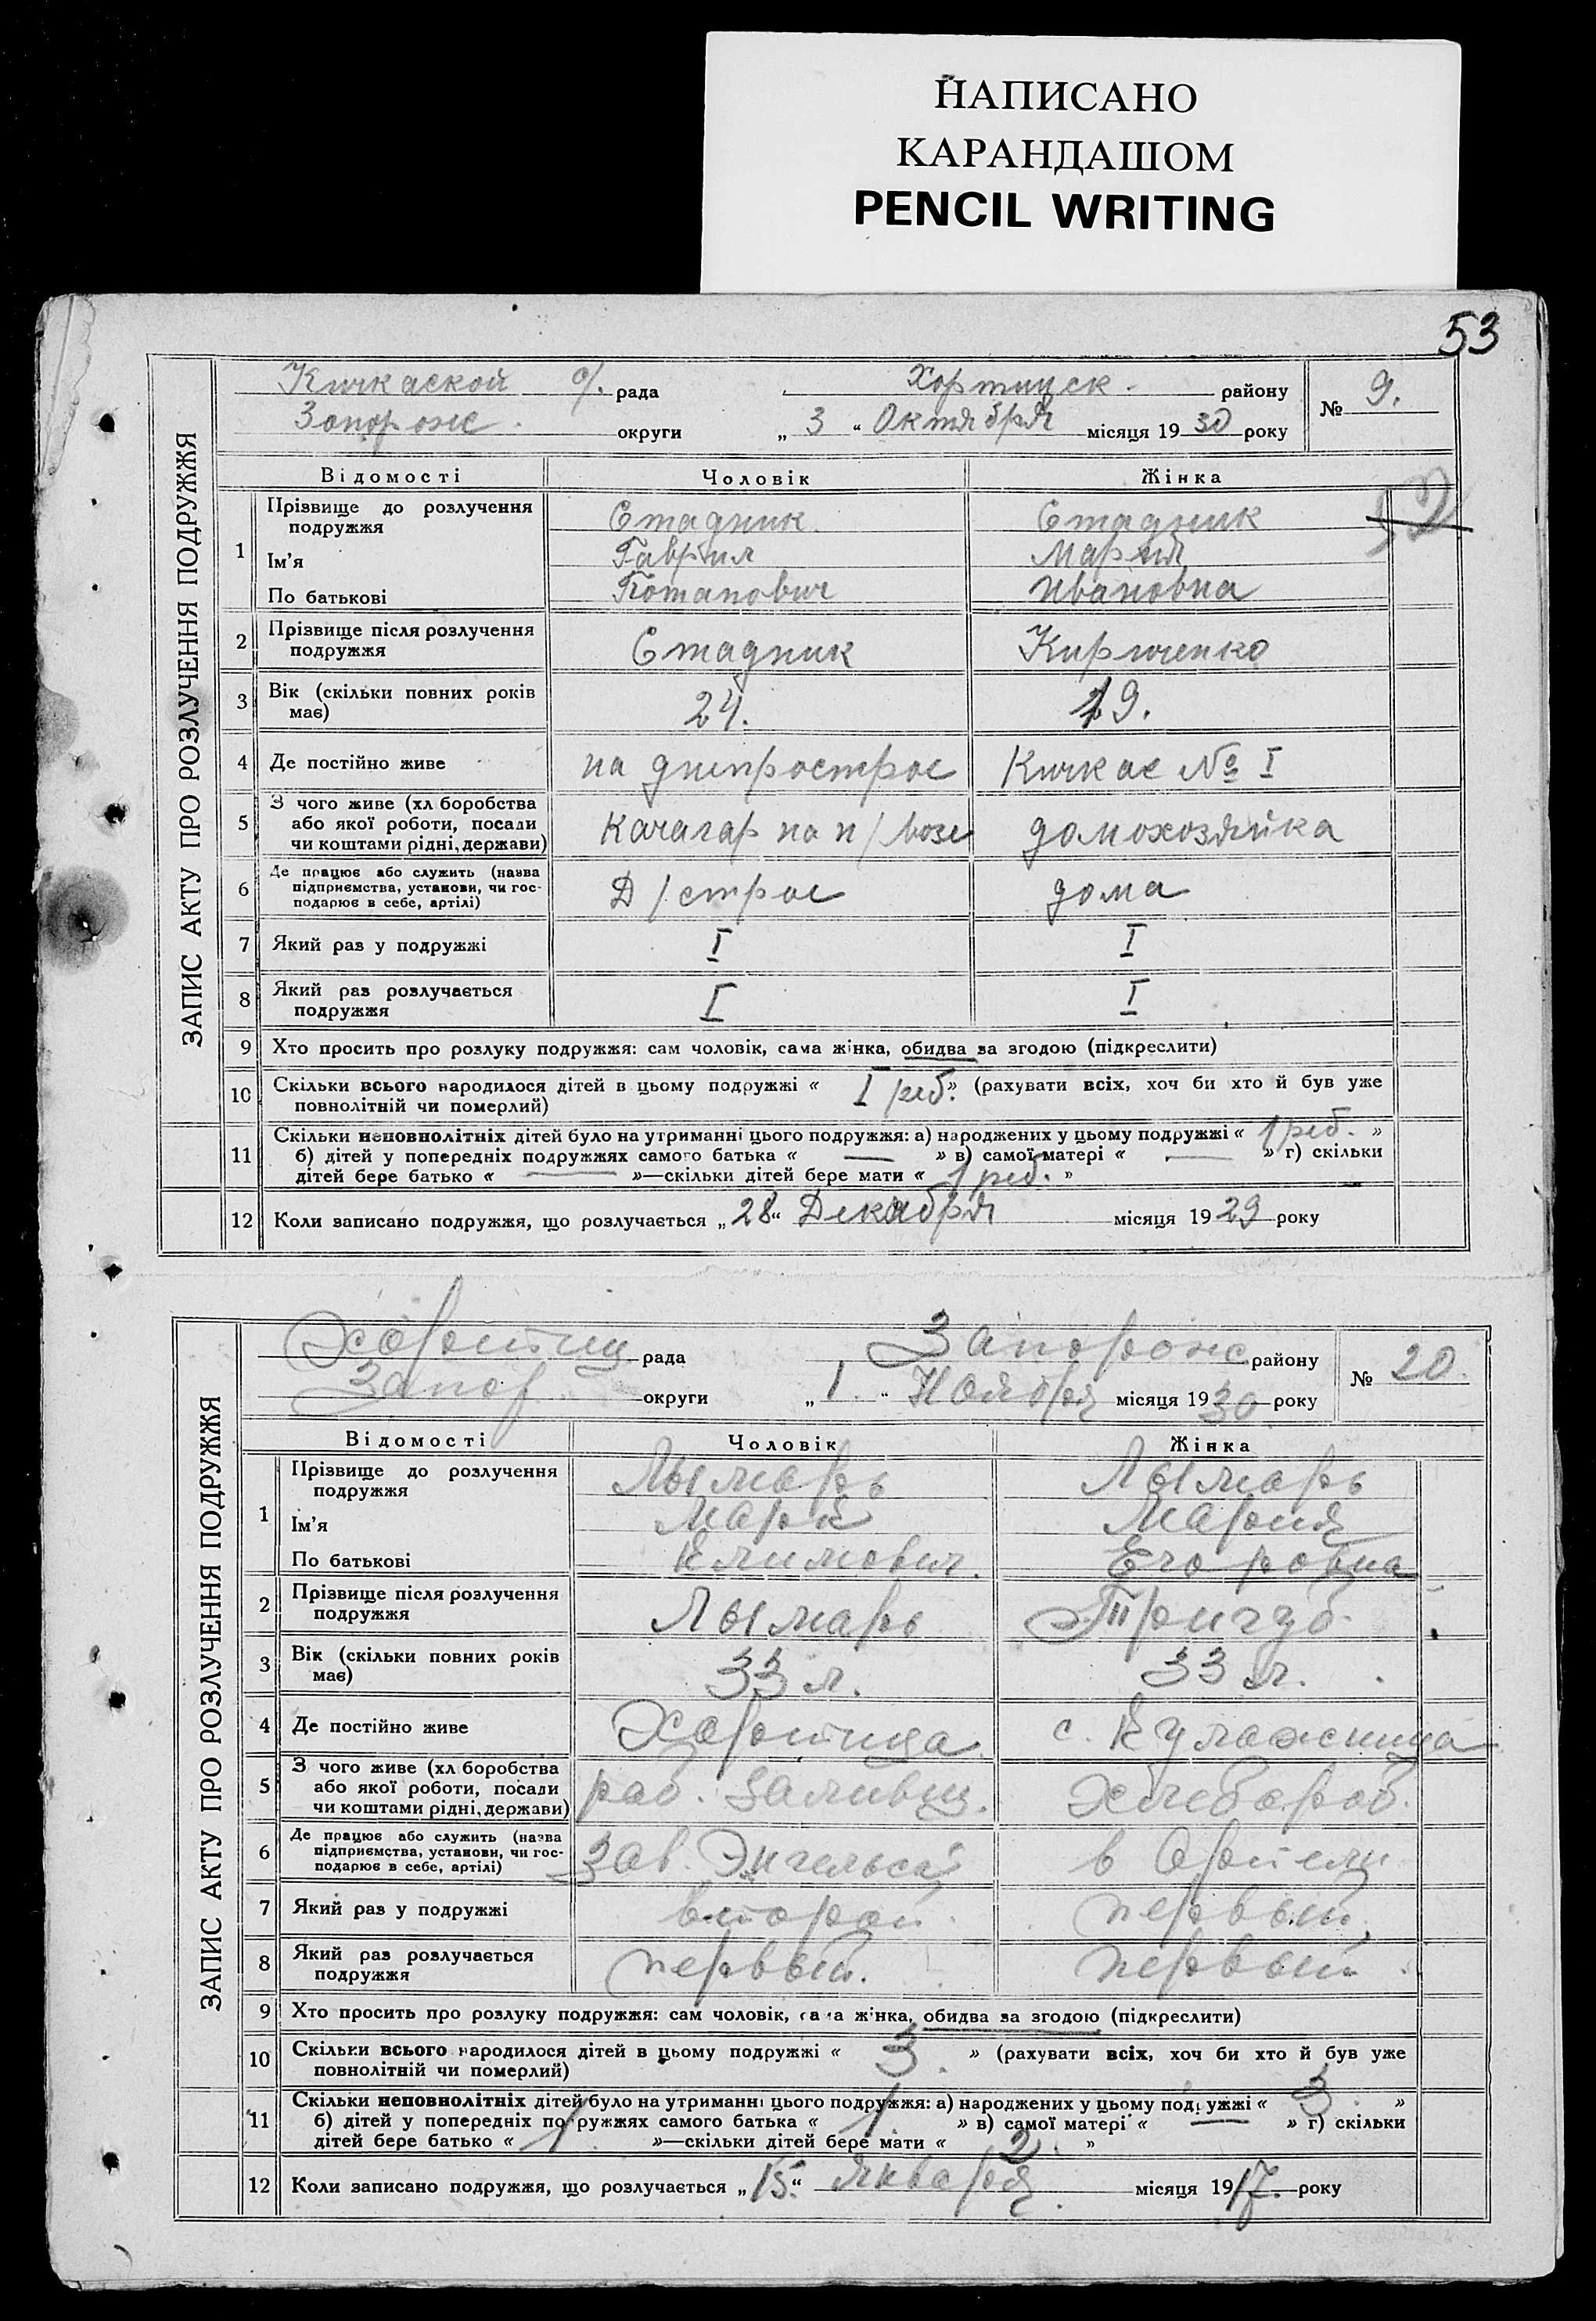 НАПИСАНО
КАРАНДАШОМ
PENCIL WRITING
53
ЗАПИС АКТУ ПРО РОЗЛУЧЕННЯ ПОДРУЖЖЯ
Кичкаской с/. рада Хортицск. району № 9.
Запорож. округи „ 3 “ Октября місяця 19 30 року
Відомості Чоловік Жінка
52
1 Прізвище до розлучення подружжя Стадник Стадник
Ім'я Гаврил Мария
По батькові Потапович Ивановна
2 Прізвище після розлучення подружжя Стадник Кириченко
3 Вік (скільки повних років має) 24. 19.
4 Де постійно живе на днепрострое Кичкас № I
5 З чого живе (хл боробства або якої роботи, посади чи коштами рідні, держави) Качагар на п/возе домохозяйка
6 Де працює або служить (назва підприємства, установи, чи господарює в себе, артілі) Д/строе дома
7 Який раз у подружжі I I
8 Який раз розлучається подружжя I I
9 Хто просить про розлуку подружжя: сам чоловік, сама жінка, обидва за згодою (підкреслити)
10 Скільки всього народилося дітей в цьому подружжі « I реб. » (рахувати всіх, хоч би хто й був уже
повнолітній чи померлий)
11 Скільки неповнолітніх дітей було на утриманні цього подружжя: а) народжених у цьому подружжі « 1 реб. »
б) дітей у попередніх подружжях самого батька « — » в) самої матері « — » г) скільки
дітей бере батько « — »—скільки дітей бере мати « 1 реб. »
12 Коли записано подружжя, що розлучається „ 28 “ Декабря місяця 19 29 року
ЗАПИС АКТУ ПРО РОЗЛУЧЕННЯ ПОДРУЖЖЯ
Хортиц рада Запорож району № 20.
Запор округи „ 1 “ Ноября місяця 19 30 року
Відомості Чоловік Жінка
1 Прізвище до розлучення подружжя Лымарь Лымарь
Ім'я Марк Мария
По батькові Климович Егоровна
2 Прізвище після розлучення подружжя Лымарь Тригуб
3 Вік (скільки повних років має) 33 л. 33 л.
4 Де постійно живе Хортица с.
5 З чого живе (хл боробства або якої роботи, посади чи коштами рідні, держави) раб. Заливщ. Хлебороб.
6 Де працює або служить (назва підприємства, установи, чи господарює в себе, артілі) Зав. Энгельса в Артели
7 Який раз у подружжі второй первый
8 Який раз розлучається подружжя первый. первый
9 Хто просить про розлуку подружжя: сам чоловік, сама жінка, обидва за згодою (підкреслити)
10 Скільки всього народилося дітей в цьому подружжі « 3. » (рахувати всіх, хоч би хто й був уже
повнолітній чи померлий)
11 Скільки неповнолітніх дітей було на утриманні цього подружжя: а) народжених у цьому подружжі « 3 »
б) дітей у попередніх подружжях самого батька « 1 » в) самої матері « — » г) скільки
дітей бере батько « 1 »—скільки дітей бере мати « 2. »
12 Коли записано подружжя, що розлучається „ 15 “ Января місяця 19 17. року